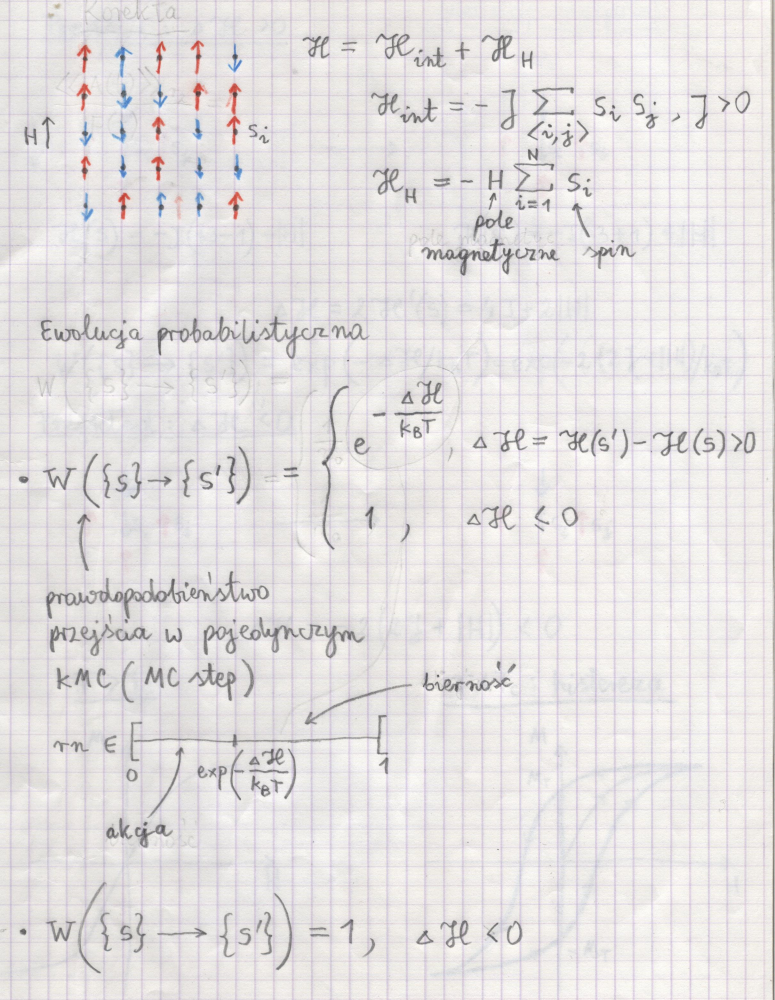 Korekta
ℋ = ℋ_int + ℋ_H
ℋ_int = - J ∑_{<i,j>} S_i S_j , J > 0
H ↑
S_i
ℋ_H = - H ∑_{i=1}^{N} S_i
pole
magnetyczne spin
Ewolucja probabilistyczna
• W({s} → {s'}) = { e^{-Δℋ/k_BT} , Δℋ = ℋ(s') - ℋ(s) > 0
1 , Δℋ ≤ 0
prawdopodobieństwo
przejścia w pojedynczym
kMC (MC step)
bierność
rn ∈ [ 0 exp(-Δℋ/k_BT) 1 [
akcja
• W({s} → {s'}) = 1, Δℋ < 0